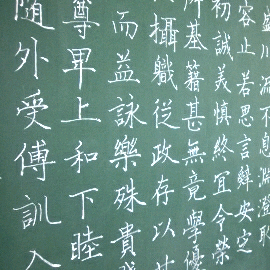 盛川流不息淵澄取
容止若思言辭安定
初誠美慎終宜令榮
所基籍甚無竟學優
攝職從政存以甘
而益詠樂殊貴
尊卑上和下睦
隨外受傅訓入